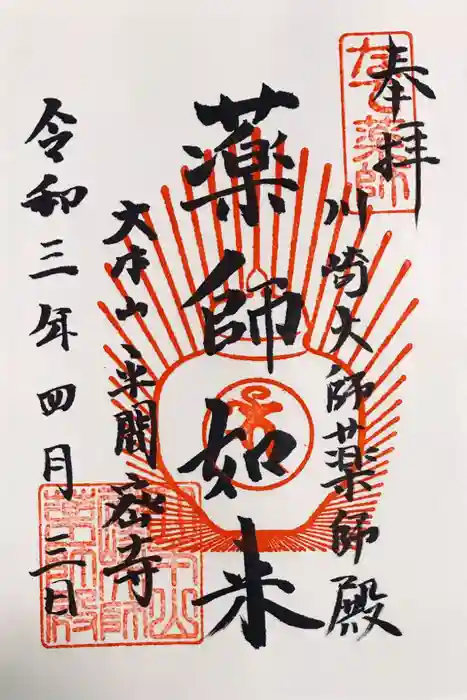 奉拝
川崎大師薬師殿
薬師如来
大本山平間寺
令和三年四月三日